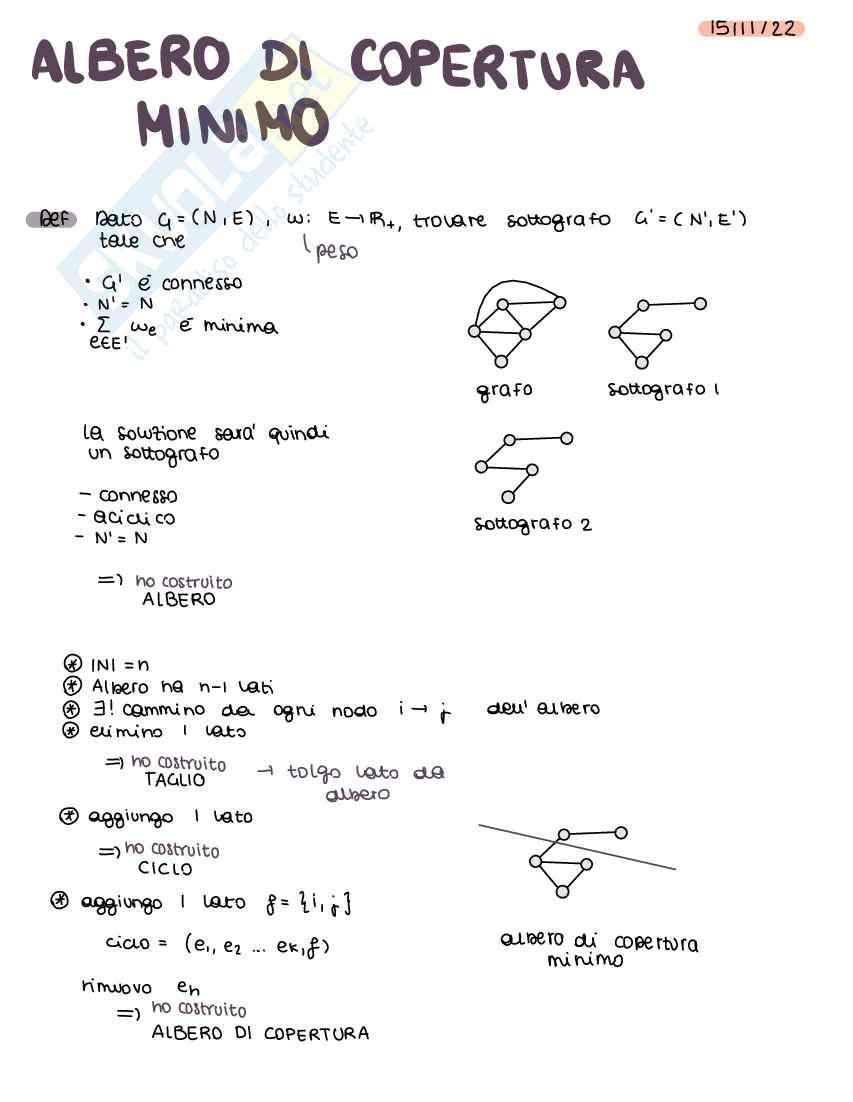 15/11/22
ALBERO DI COPERTURA
MINIMO
SKUOLA.net
il paradiso dello studente
Def Dato G = (N, E), w: E → R+, trovare sottografo G' = (N', E')
tale che
peso
• G' è connesso
• N' = N
• Σ we è minima
e∈E'
grafo
sottografo 1
la soluzione sara' quindi
un sottografo
- connesso
- aciclico
- N' = N
sottografo 2
=) ho costruito
ALBERO
* |N| = n
* Albero ha n-1 lati
* ∃! cammino da ogni nodo i → j dell' albero
* elimino 1 lato
=) ho costruito
TAGLIO → tolgo lato da
albero
* aggiungo 1 lato
=) ho costruito
CICLO
* aggiungo 1 lato f = {i, j}
ciclo = (e1, e2 ... ek, f)
albero di copertura
minimo
rimuovo eh
=) ho costruito
ALBERO DI COPERTURA